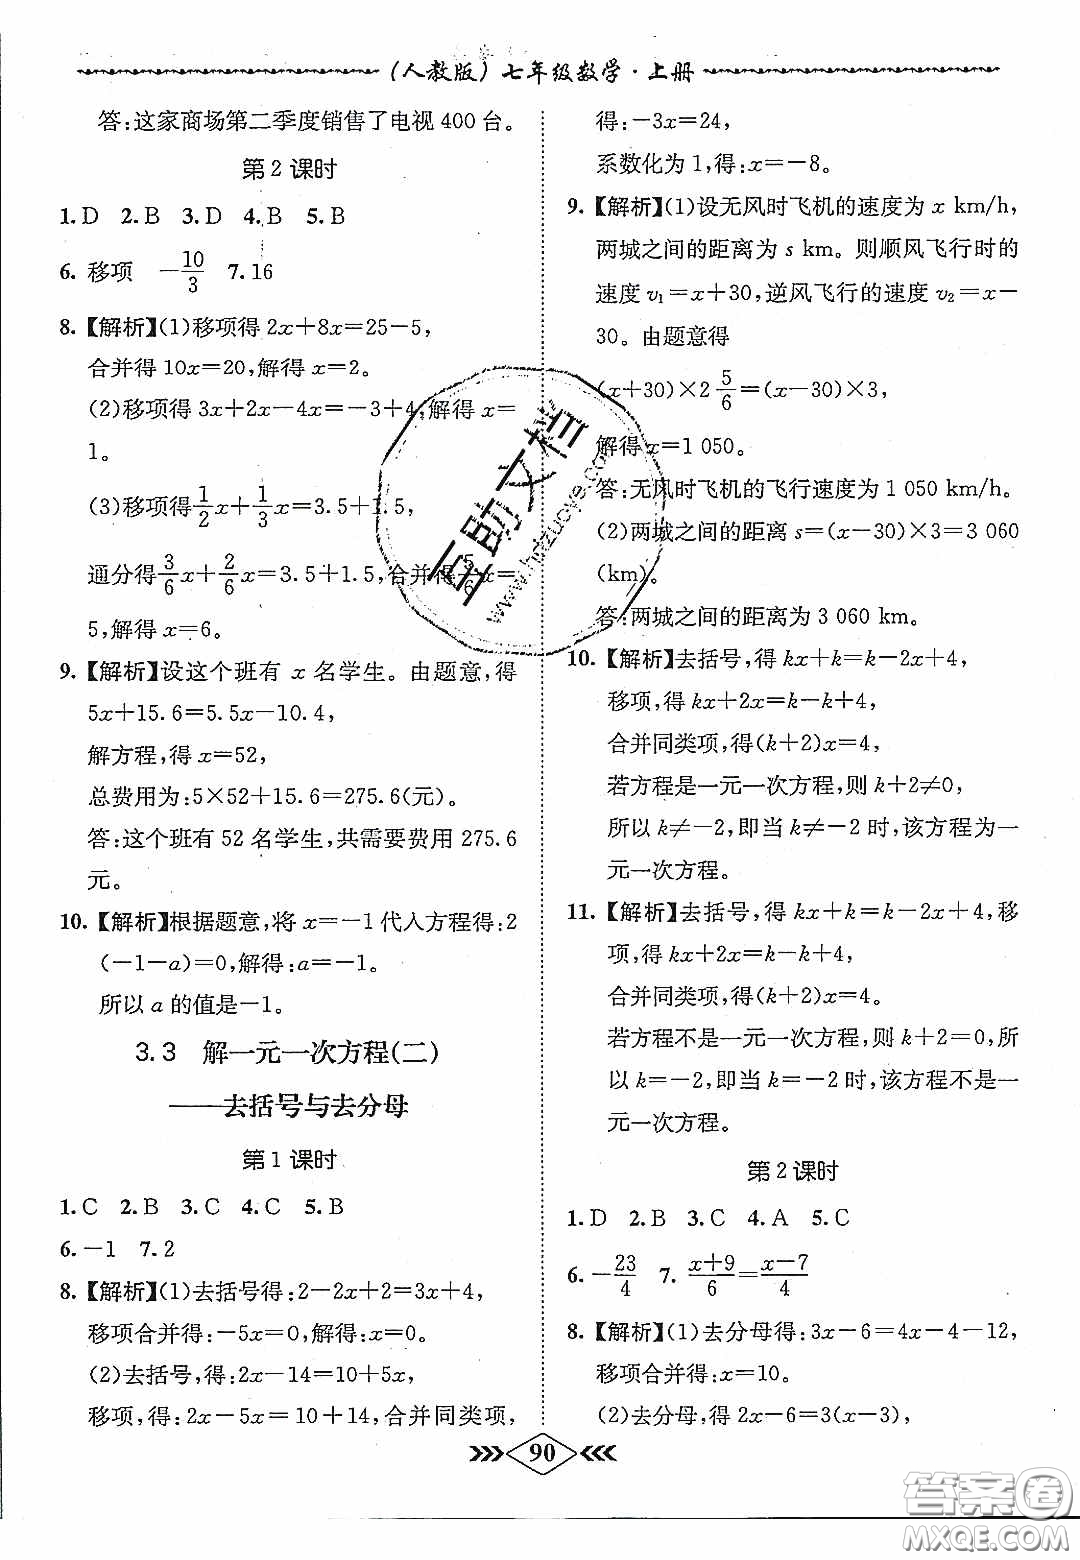 (人教版)七年级数学·上册
答:这家商场第二季度销售了电视 400 台。
第 2 课时
1. D  2. B  3. D  4. B  5. B
6. 移项  -10/3  7. 16
8.【解析】(1)移项得 2x+8x=25-5,
合并得 10x=20,解得 x=2。
(2)移项得 3x+2x-4x=-3+4,解得 x=
1。
(3)移项得 1/2 x+1/3 x=3.5+1.5,
通分得 3/6 x+2/6 x=3.5+1.5,合并得 5/6 x=
5,解得 x=6。
9.【解析】设这个班有 x 名学生。由题意,得
5x+15.6=5.5x-10.4,
解方程,得 x=52,
总费用为:5×52+15.6=275.6(元)。
答:这个班有 52 名学生,共需要费用 275.6
元。
10.【解析】根据题意,将 x=-1 代入方程得:2
(-1-a)=0,解得:a=-1。
所以 a 的值是-1。
3.3 解一元一次方程(二)
——去括号与去分母
第 1 课时
1. C  2. B  3. C  4. C  5. B
6. -1  7. 2
8.【解析】(1)去括号得:2-2x+2=3x+4,
移项合并得:-5x=0,解得:x=0。
(2)去括号,得:2x-14=10+5x,
移项,得:2x-5x=10+14,合并同类项,
得:-3x=24,
系数化为 1,得:x=-8。
9.【解析】(1)设无风时飞机的速度为 x km/h,
两城之间的距离为 s km。则顺风飞行时的
速度 v₁=x+30,逆风飞行的速度 v₂=x-
30。由题意得
(x+30)×2 5/6=(x-30)×3,
解得 x=1 050。
答:无风时飞机的飞行速度为 1 050 km/h。
(2)两城之间的距离 s=(x-30)×3=3 060
(km)。
答:两城之间的距离为 3 060 km。
10.【解析】去括号,得 kx+k=k-2x+4,
移项,得 kx+2x=k-k+4,
合并同类项,得(k+2)x=4,
若方程是一元一次方程,则 k+2≠0,
所以 k≠-2,即当 k≠-2 时,该方程为一
元一次方程。
11.【解析】去括号,得 kx+k=k-2x+4,移
项,得 kx+2x=k-k+4,
合并同类项,得(k+2)x=4。
若方程不是一元一次方程,则 k+2=0,所
以 k=-2,即当 k=-2 时,该方程不是一
元一次方程。
第 2 课时
1. D  2. B  3. C  4. A  5. C
6. -23/4  7. (x+9)/6=(x-7)/4
8.【解析】(1)去分母得:3x-6=4x-4-12,
移项合并得:x=10。
(2)去分母,得 2x-6=3(x-3),
90
互助文档
www.hdzuoye.com
答案圈
MXQE.COM